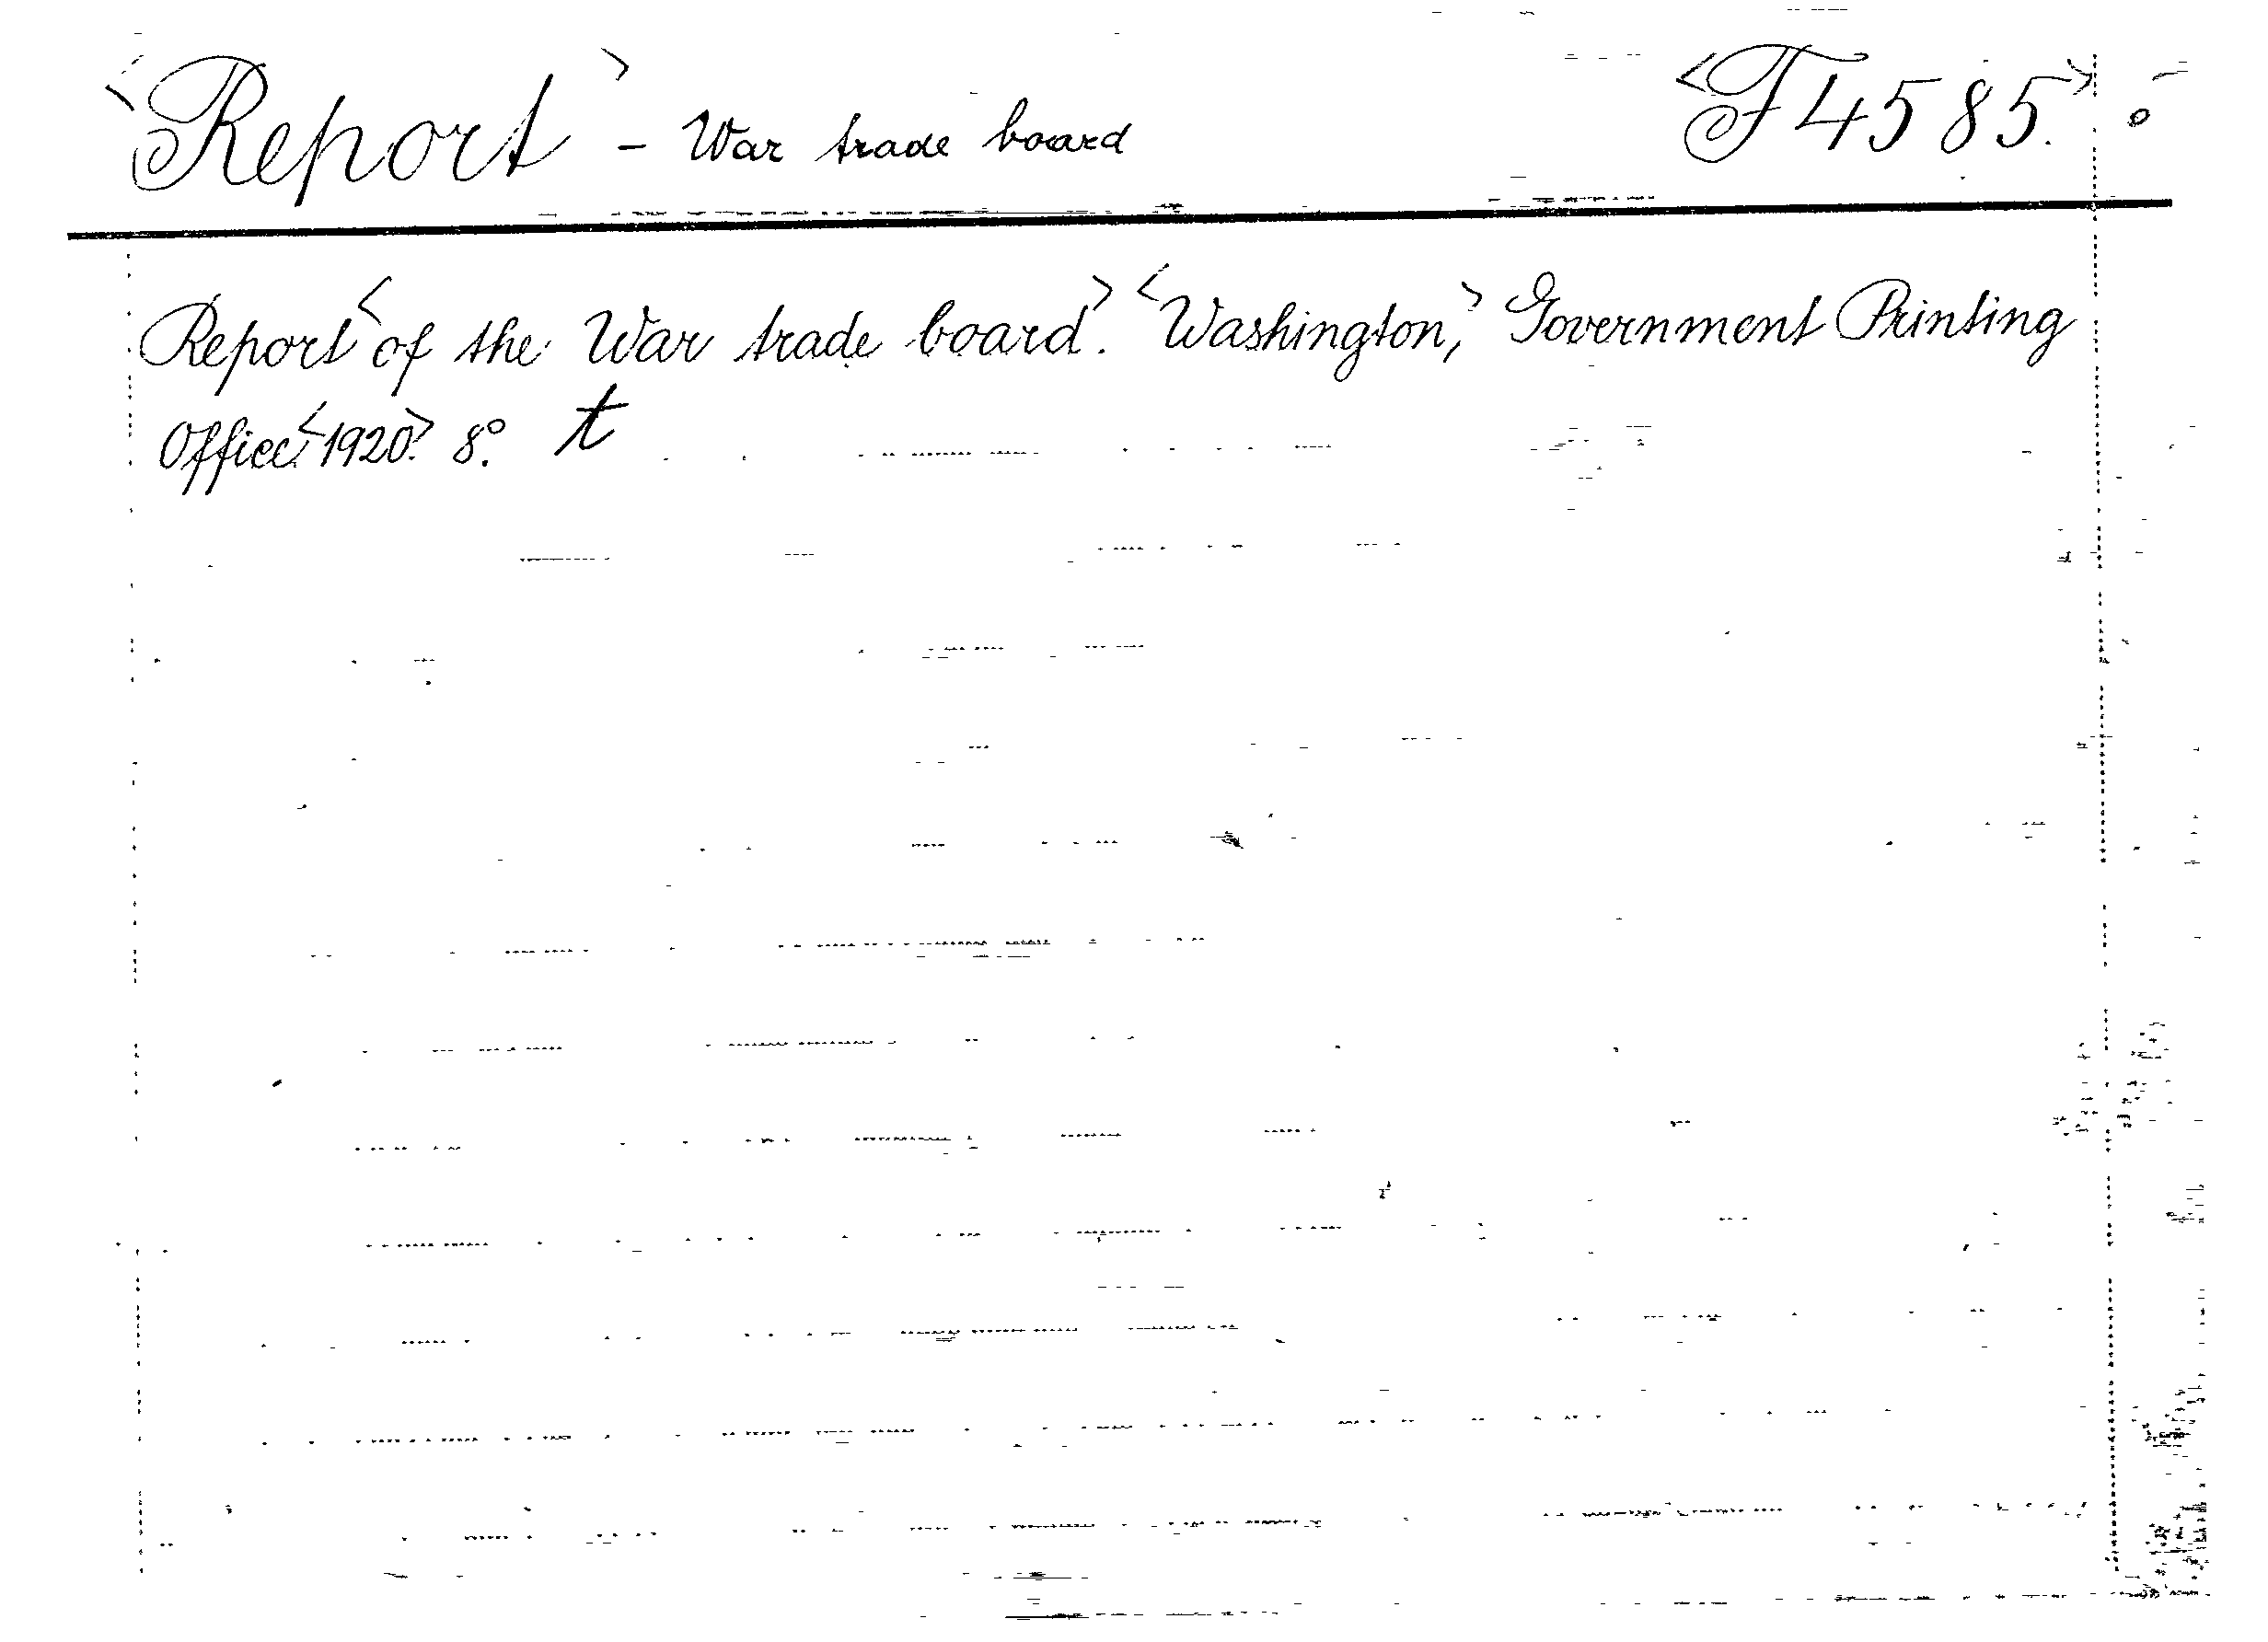 <Report> - War trade board <F4585.>
Report <of the War trade board.> <Washington,> Government Printing
Office. <1920>. 8°. t